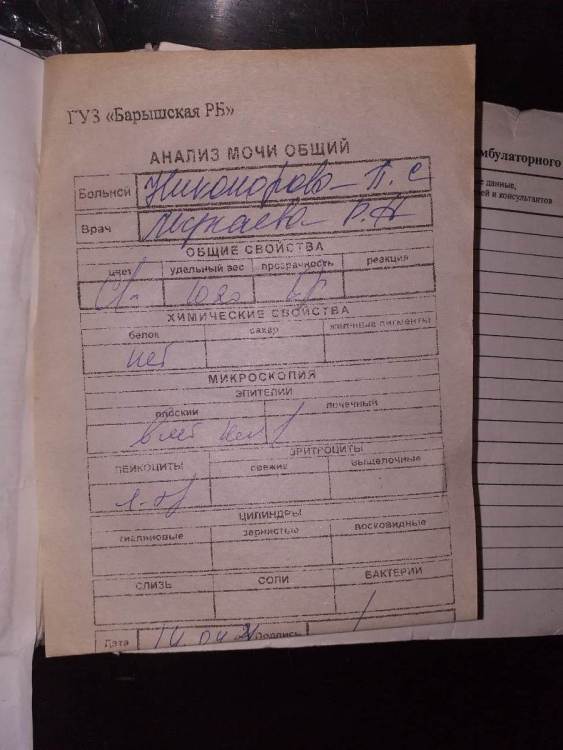 ГУЗ «Барышская РБ»
АНАЛИЗ МОЧИ ОБЩИЙ
Больной Никонорова П. С
Врач
ОБЩИЕ СВОЙСТВА
цвет удельный вес прозрачность реакция
1020
ХИМИЧЕСКИЕ СВОЙСТВА
белок сахар желчные пигменты
нет
МИКРОСКОПИЯ
ЭПИТЕЛИИ
плоский почечный
ЛЕЙКОЦИТЫ ЭРИТРОЦИТЫ
свежие выщелочные
ЦИЛИНДРЫ
гиалиновые зернистые восковидные
СЛИЗЬ СОЛИ БАКТЕРИИ
Дата Подпись
мбулаторного
данные,
й и консультантов